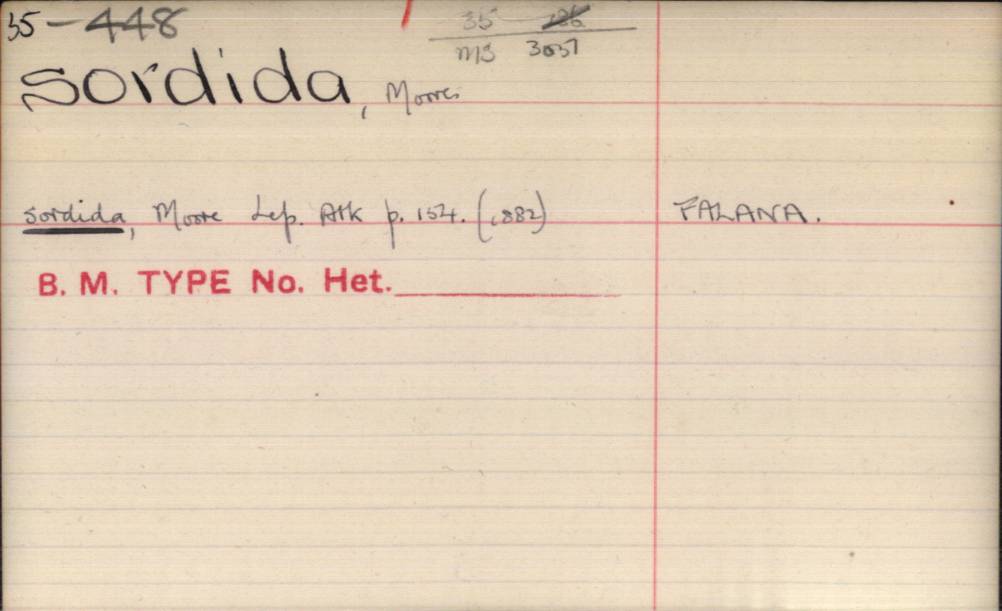 35-448
35 186
MS 3037
sordida, Moore
sordida, Moore Lep. Atk p. 154. (1882) FALANA.
B. M. TYPE No. Het.